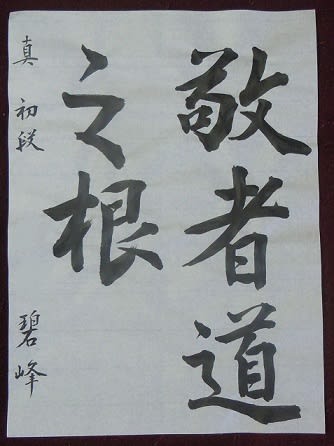 敬者道
之根
真 初段 碧峰